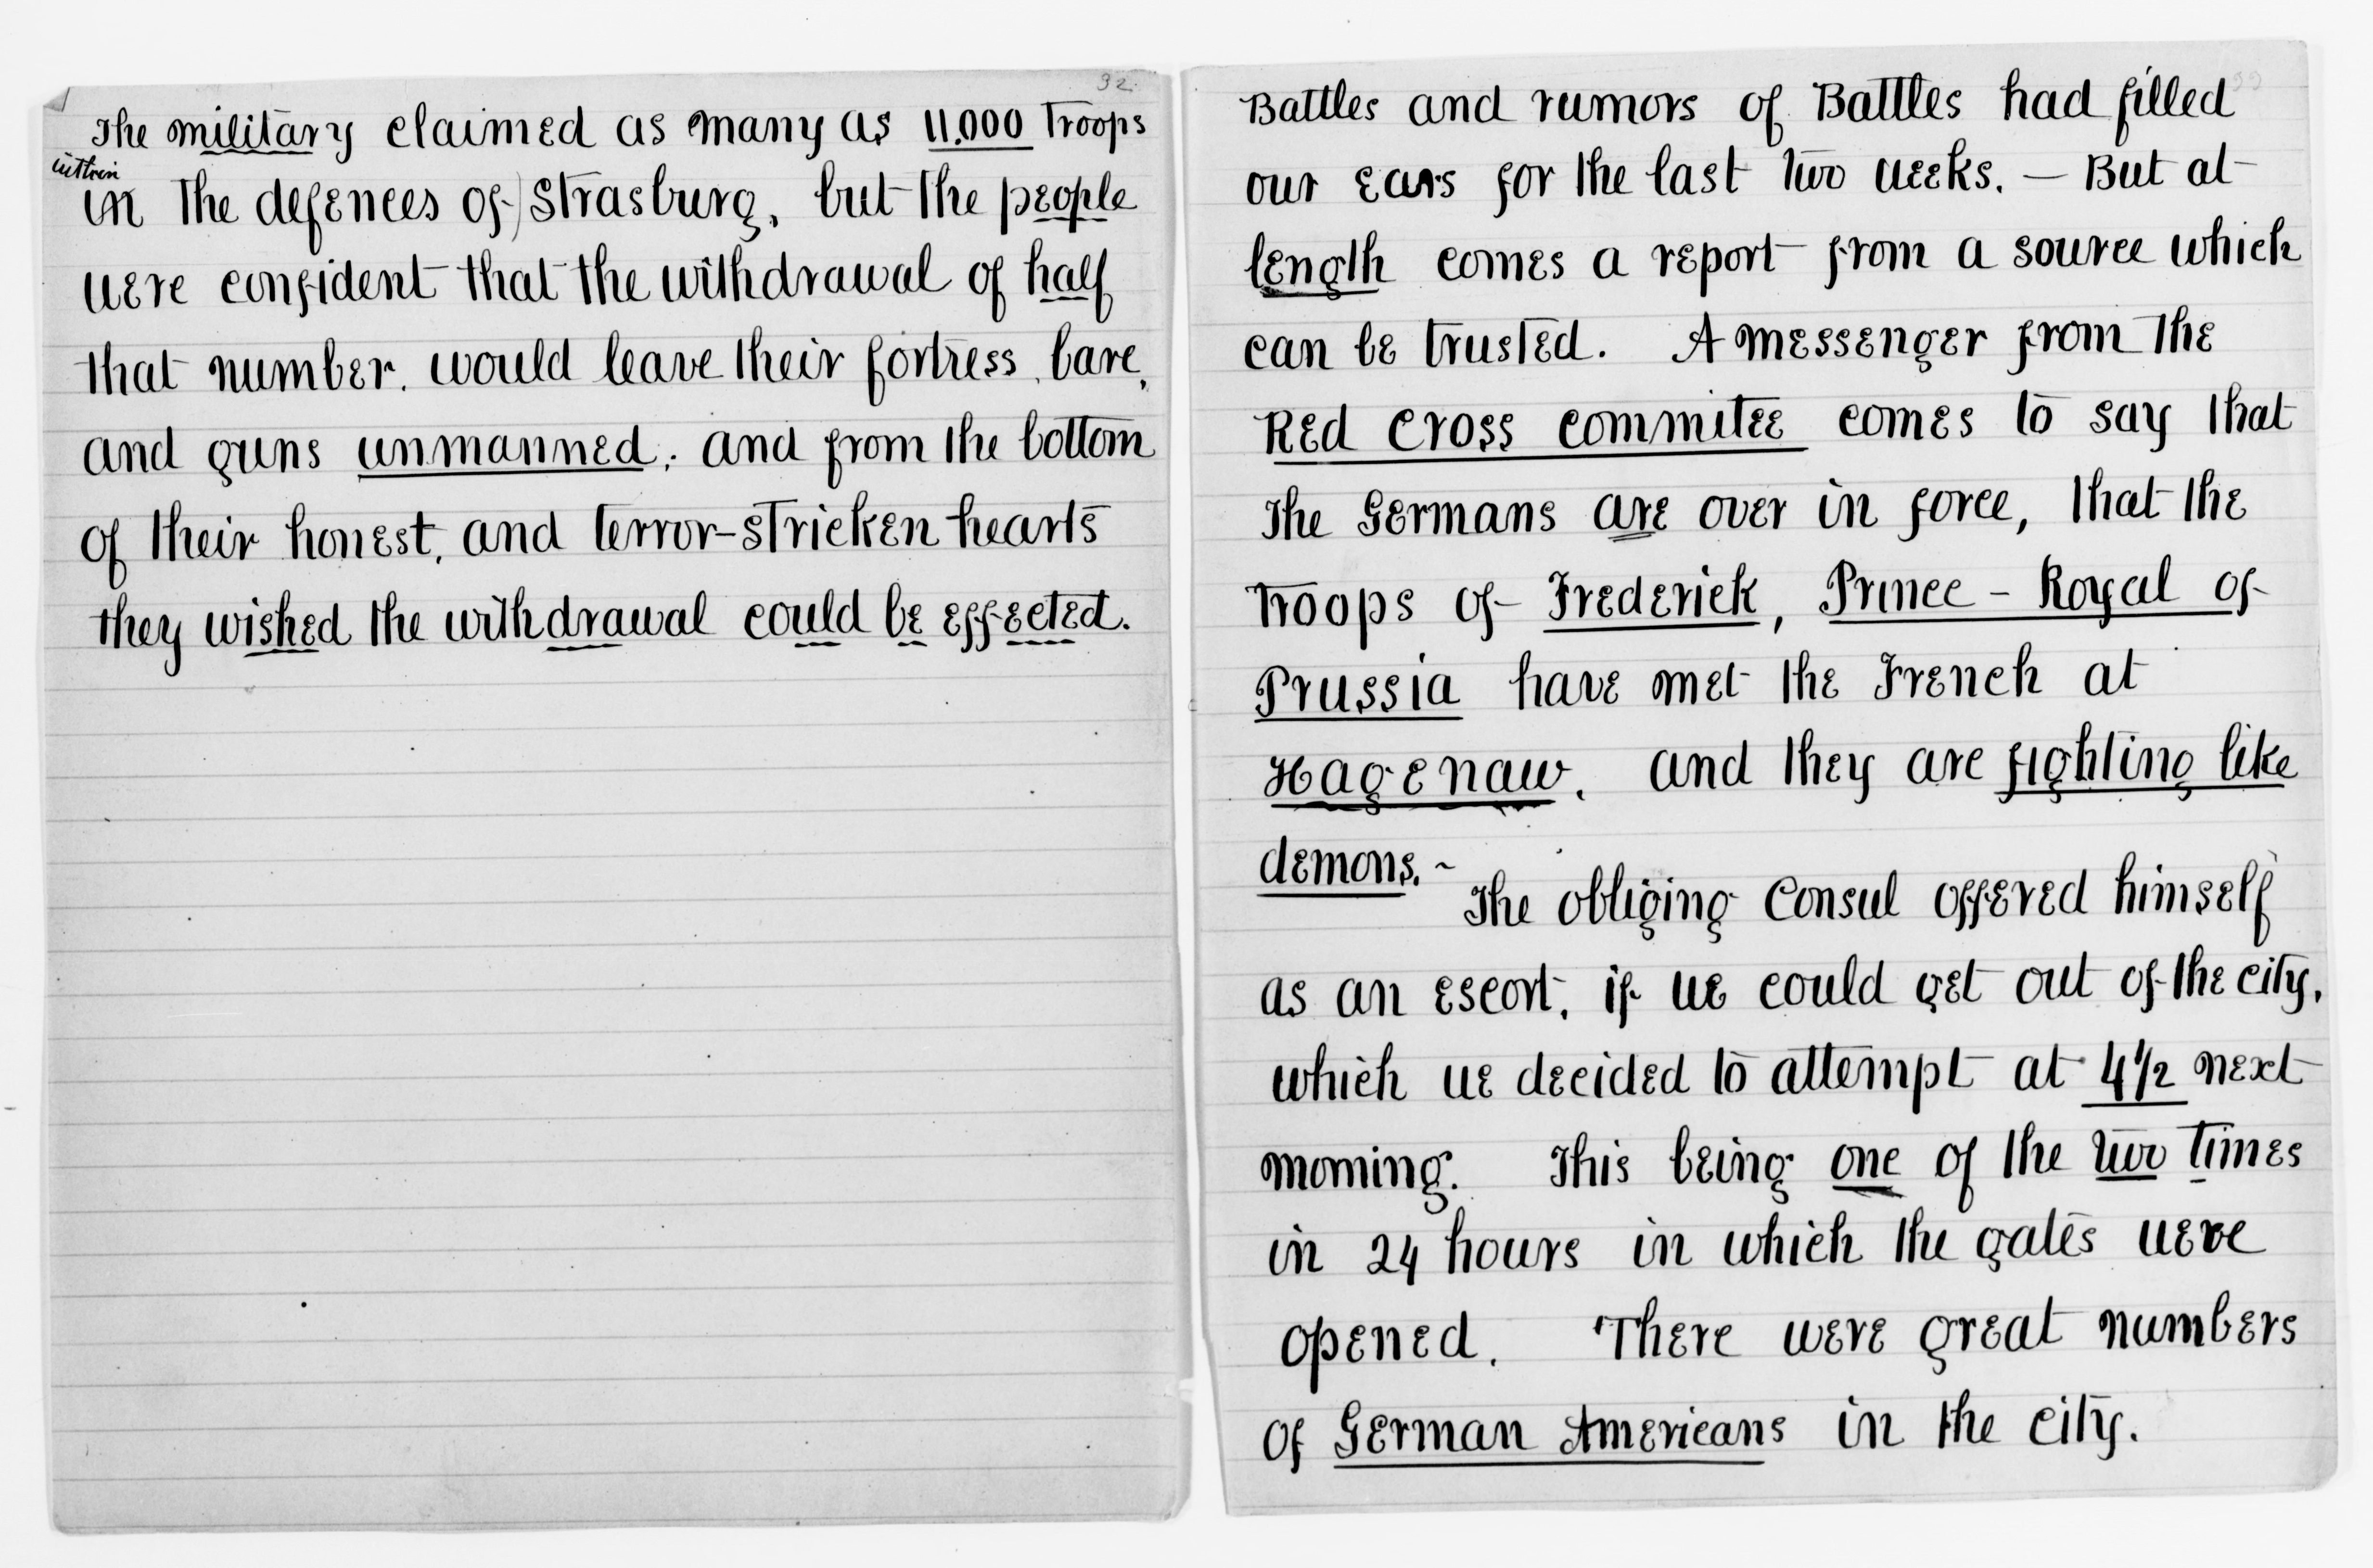 32.
The military claimed as many as 11.000 Troops
within
in The defences of) Strasburg, but the people
were confident that the withdrawal of half
that number. would leave their fortress, bare,
and guns unmanned; and from the bottom
of their honest, and terror-stricken hearts
they wished the withdrawal could be effected.
33
Battles and rumors of Battles had filled
our ears for the last two weeks. — But at
length comes a report from a source which
can be trusted. A messenger from the
Red Cross commitee comes to say that
The Germans are over in force, that the
Troops of Frederick, Prince - Royal of
Prussia have met the French at
Hagenaw, and they are fighting like
demons. ~
The obliging Consul offered himself
as an escort, if we could get out of the city,
which we decided to attempt at 4½ next
morning. This being one of the two times
in 24 hours in which the gates were
opened. There were great numbers
of German Americans in the city.